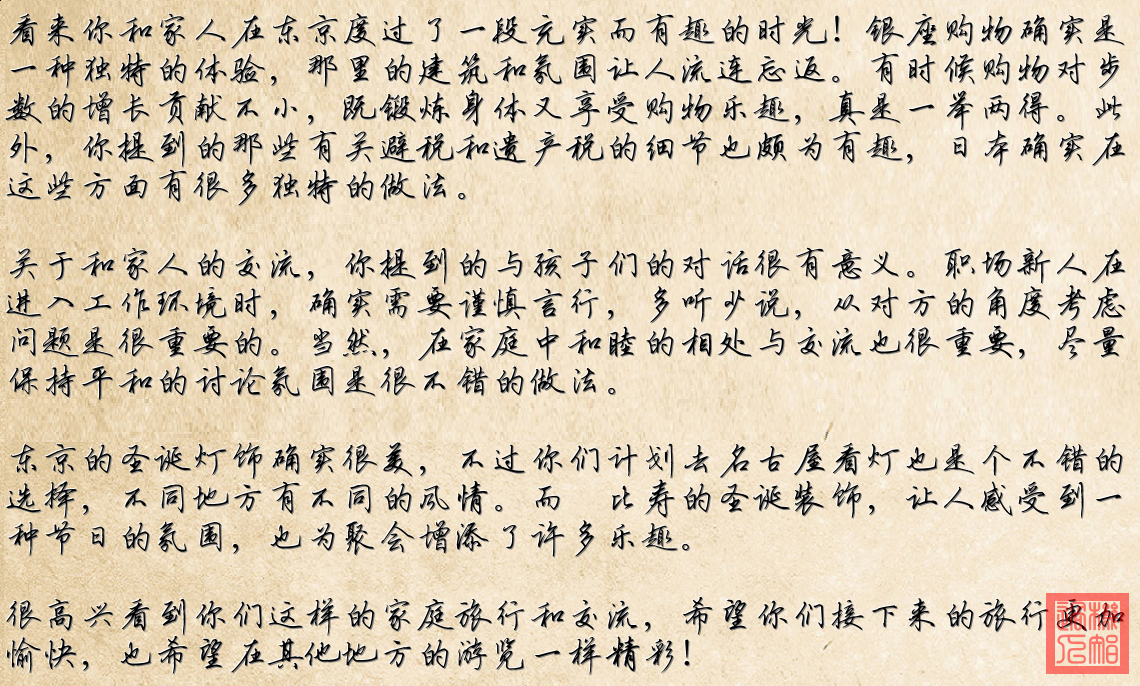 看来你和家人在东京度过了一段充实而有趣的时光！银座购物确实是
一种独特的体验，那里的建筑和氛围让人流连忘返。有时候购物对步
数的增长贡献不小，既锻炼身体又享受购物乐趣，真是一举两得。此
外，你提到的那些有关避税和遗产税的细节也颇为有趣，日本确实在
这些方面有很多独特的做法。
关于和家人的交流，你提到的与孩子们的对话很有意义。职场新人在
进入工作环境时，确实需要谨慎言行，多听少说，从对方的角度考虑
问题是很重要的。当然，在家庭中和睦的相处与交流也很重要，尽量
保持平和的讨论氛围是很不错的做法。
东京的圣诞灯饰确实很美，不过你们计划去名古屋看灯也是个不错的
选择，不同地方有不同的风情。而 比寿的圣诞装饰，让人感受到一
种节日的氛围，也为聚会增添了许多乐趣。
很高兴看到你们这样的家庭旅行和交流，希望你们接下来的旅行更加
愉快，也希望在其他地方的游览一样精彩！